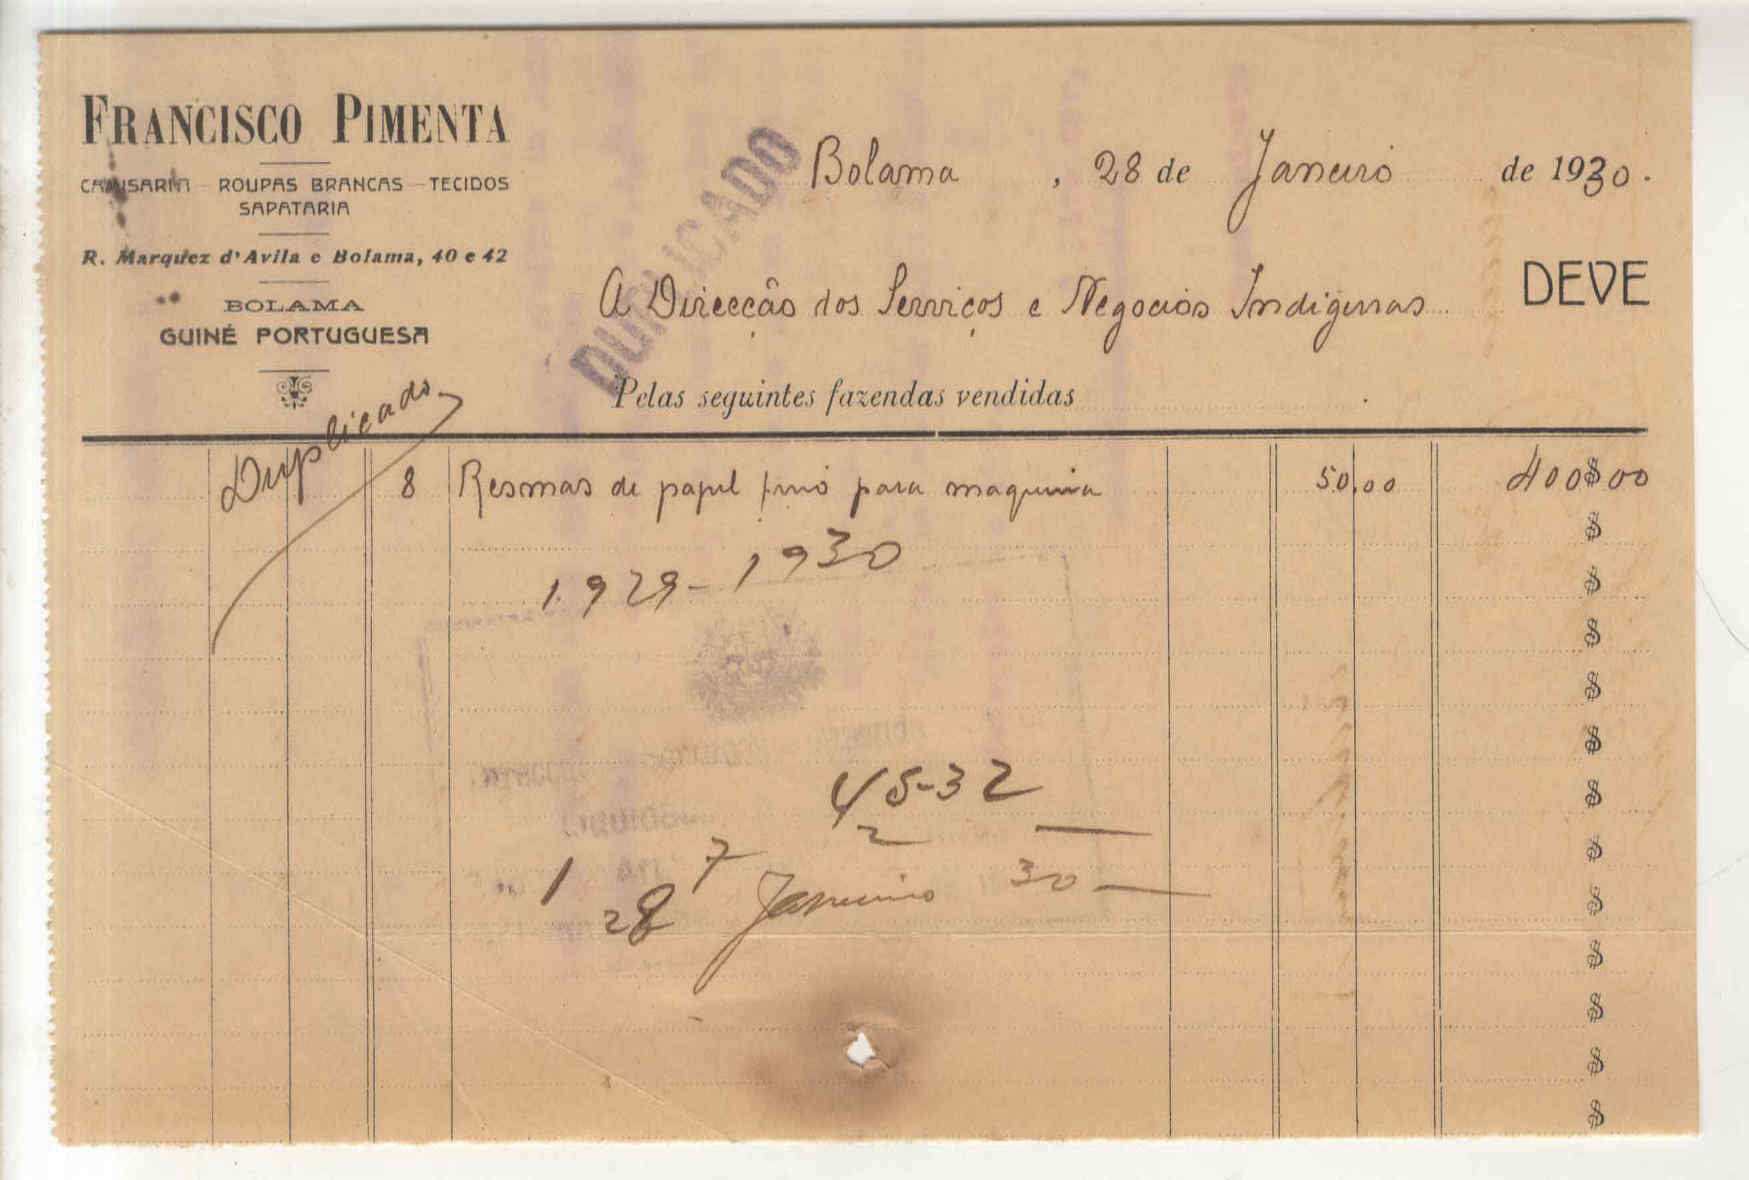 FRANCISCO PIMENTA
CAMISARIA — ROUPAS BRANCAS — TECIDOS
SAPATARIA
R. Marquez d'Avila e Bolama, 40 e 42
BOLAMA
GUINÉ PORTUGUESA
DUPLICADO
Bolama, 28 de Janeiro de 1930.
A Direcção dos Serviços e Negocios Indigenas DEVE
Pelas seguintes fazendas vendidas
Duplicado
8 Resmas de papel fino para maquina 50,00 400$00
$
1929-1930
$
$
$
$
$
45-32
2
$
1 7
28 Janeiro 30
$
$
$
$
$